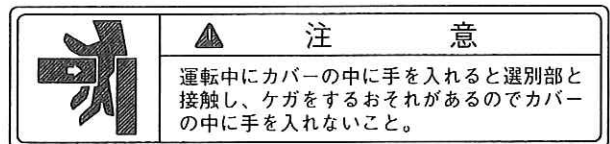 注意
運転中にカバーの中に手を入れると選別部と
接触し、ケガをするおそれがあるのでカバー
の中に手を入れないこと。